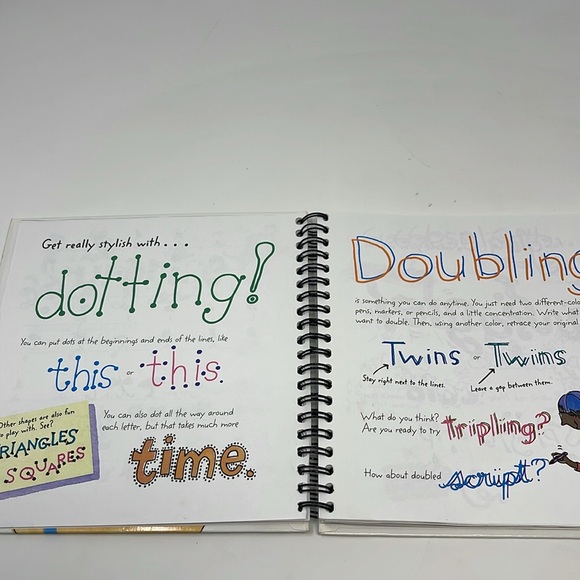 Get really stylish with . . .
dotting!
You can put dots at the beginnings and ends of the lines, like
this or this.
Other shapes are also fun
to play with. See?
RIANGLES
SQUARES
You can also dot all the way around
each letter, but that takes much more
time.
Doubling
is something you can do anytime. You just need two different-colo
pens, markers, or pencils, and a little concentration. Write what
want to double. Then, using another color, retrace your original
Twins or Twins
Stay right next to the lines.
Leave a gap between them.
What do you think?
Are you ready to try tripling?
How about doubled script?